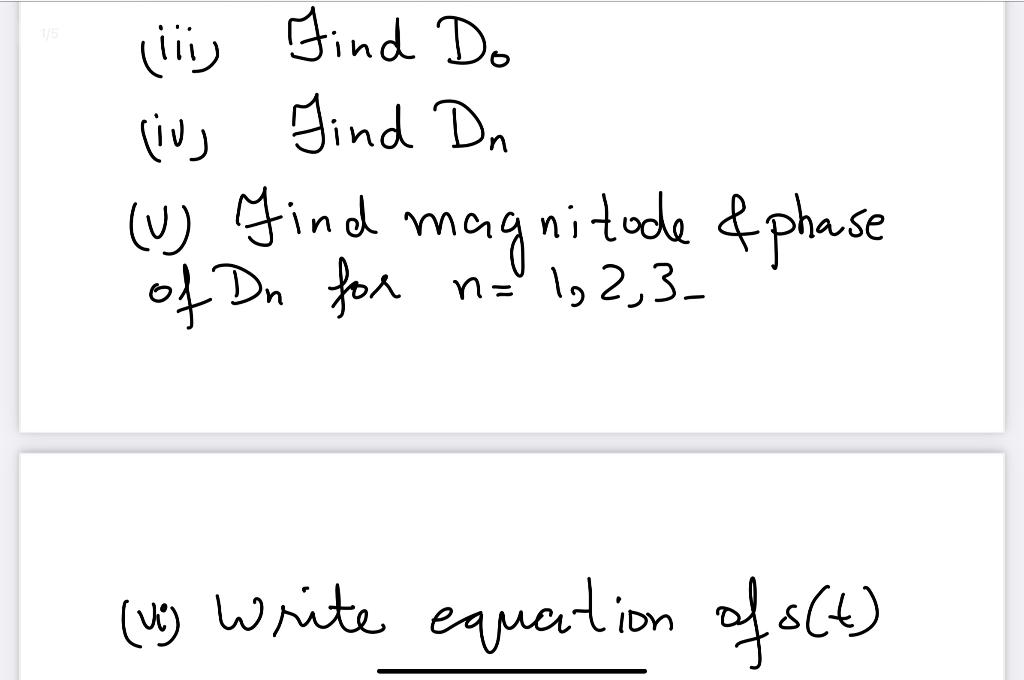 1/5
(iii) Find D₀
(iv) Find Dn
(v) Find magnitode & phase
of Dn for n = 1, 2, 3 –
(vi) Write equation of s(t)